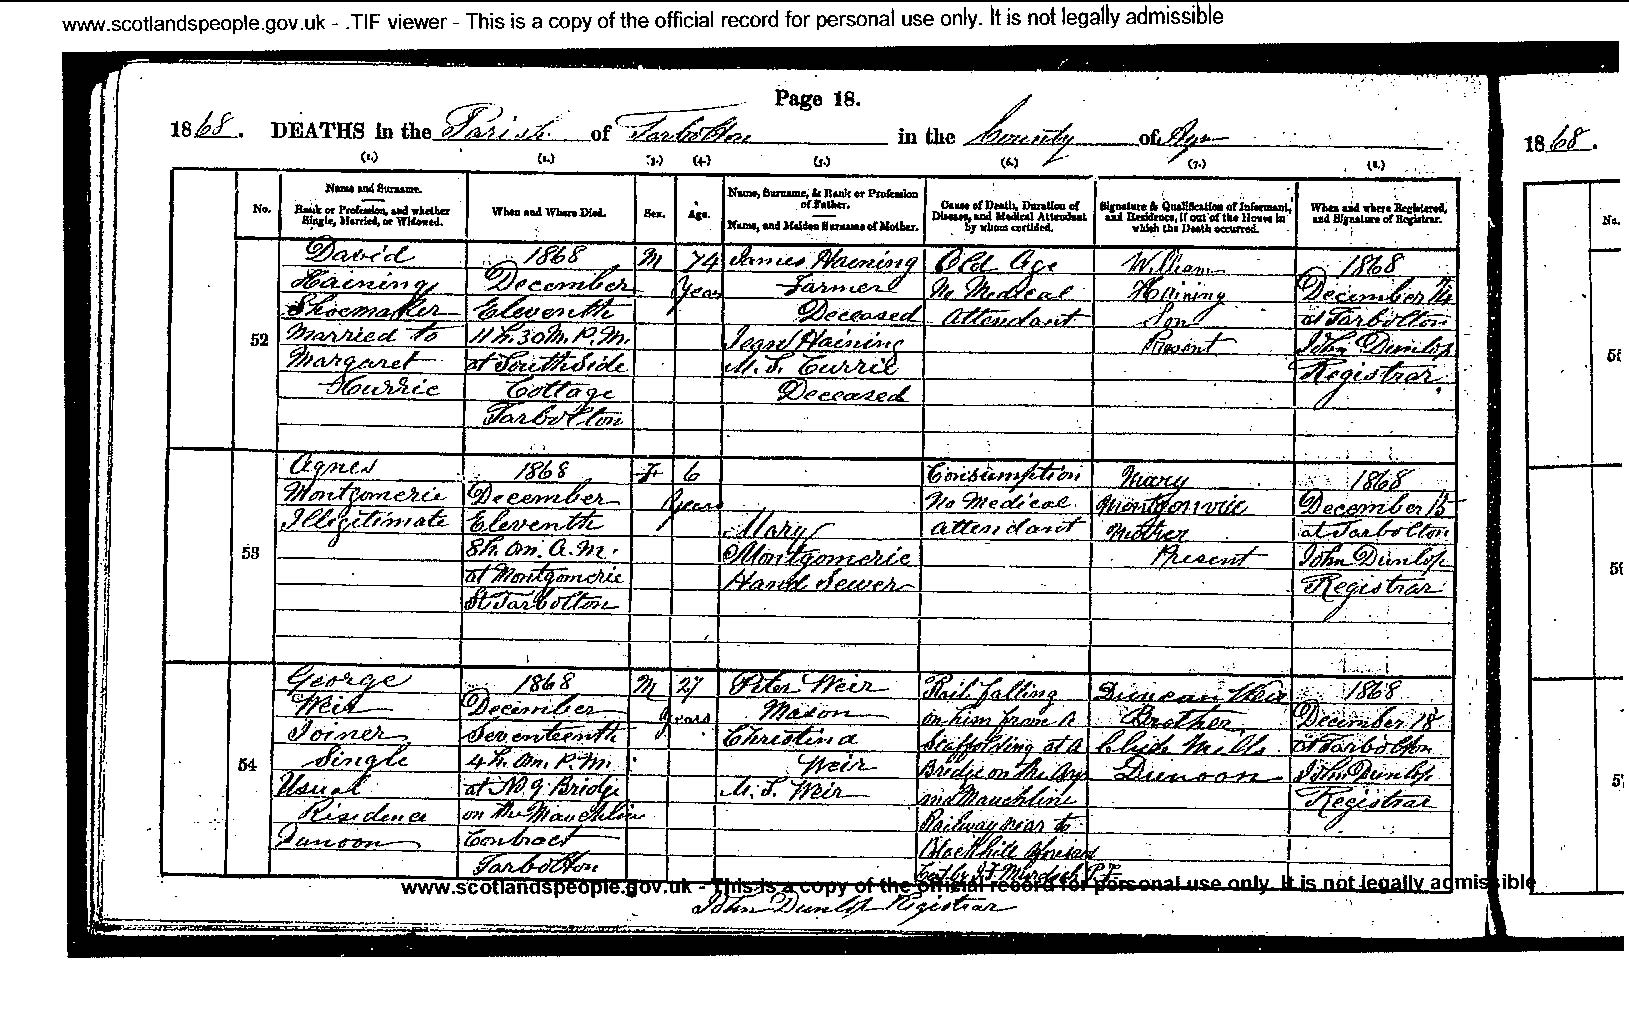 www.scotlandspeople.gov.uk - .TIF viewer - This is a copy of the official record for personal use only. It is not legally admissible
Page 18.
1868. DEATHS in the Parish of Tarbolton in the County of Ayr
1868.
(1.) (2.) (3.) (4.) (5.) (6.) (7.) (8.)
No.
Name and Surname.
Rank or Profession, and whether
Single, Married, or Widowed.
When and Where Died.
Sex.
Age.
Name, Surname, & Rank or Profession
of Father.
Name, and Maiden Surname of Mother.
Cause of Death, Duration of
Disease, and Medical Attendant
by whom certified.
Signature & Qualification of Informant,
and Residence, if out of the House in
which the Death occurred.
When and where Registered,
and Signature of Registrar.
No.
52
David
Haining
Shoemaker
Married to
Margaret
Currie
1868
December
Eleventh
11 h. 30 m. P.M.
at Southside
Cottage
Tarbolton
M
74
Years
James Haining
Farmer
Deceased
Jean Haining
M. S. Currie
Deceased
Old Age
No Medical
Attendant
William
Haining
Son
Present
1868
December 14
at Tarbolton
John Dunlop
Registrar.
53
Agnes
Montgomerie
Illigitimate
1868
December
Eleventh
8 h. 0m. A.M.
at Montgomerie
St Tarbolton
F
6
Years
Mary
Montgomerie
Hand Sewer
Consumption
No Medical
Attendant
Mary
Montgomerie
Mother
Present
1868
December 15
at Tarbolton
John Dunlop
Registrar
54
George
Weir
Joiner
Single
Usual
Residence
Dunoon
1868
December
Seventeenth
4 h. 0m. P.M.
at No. 9 Bridge
on the Mauchline
Contract
Tarbolton
M
27
years
Peter Weir
Mason
Christina
Weir
M. S. Weir
Rail falling
on him from a
Scaffolding at a
Bridge on the Ayr
and Mauchline
Railway near to
Blackhill
Cert. by Murdoch P.F.
Duncan Weir
Brother
Clyde Mills
Dunoon
1868
December 18
at Tarbolton
John Dunlop
Registrar
www.scotlandspeople.gov.uk - This is a copy of the official record for personal use only. It is not legally admissible
John Dunlop Registrar